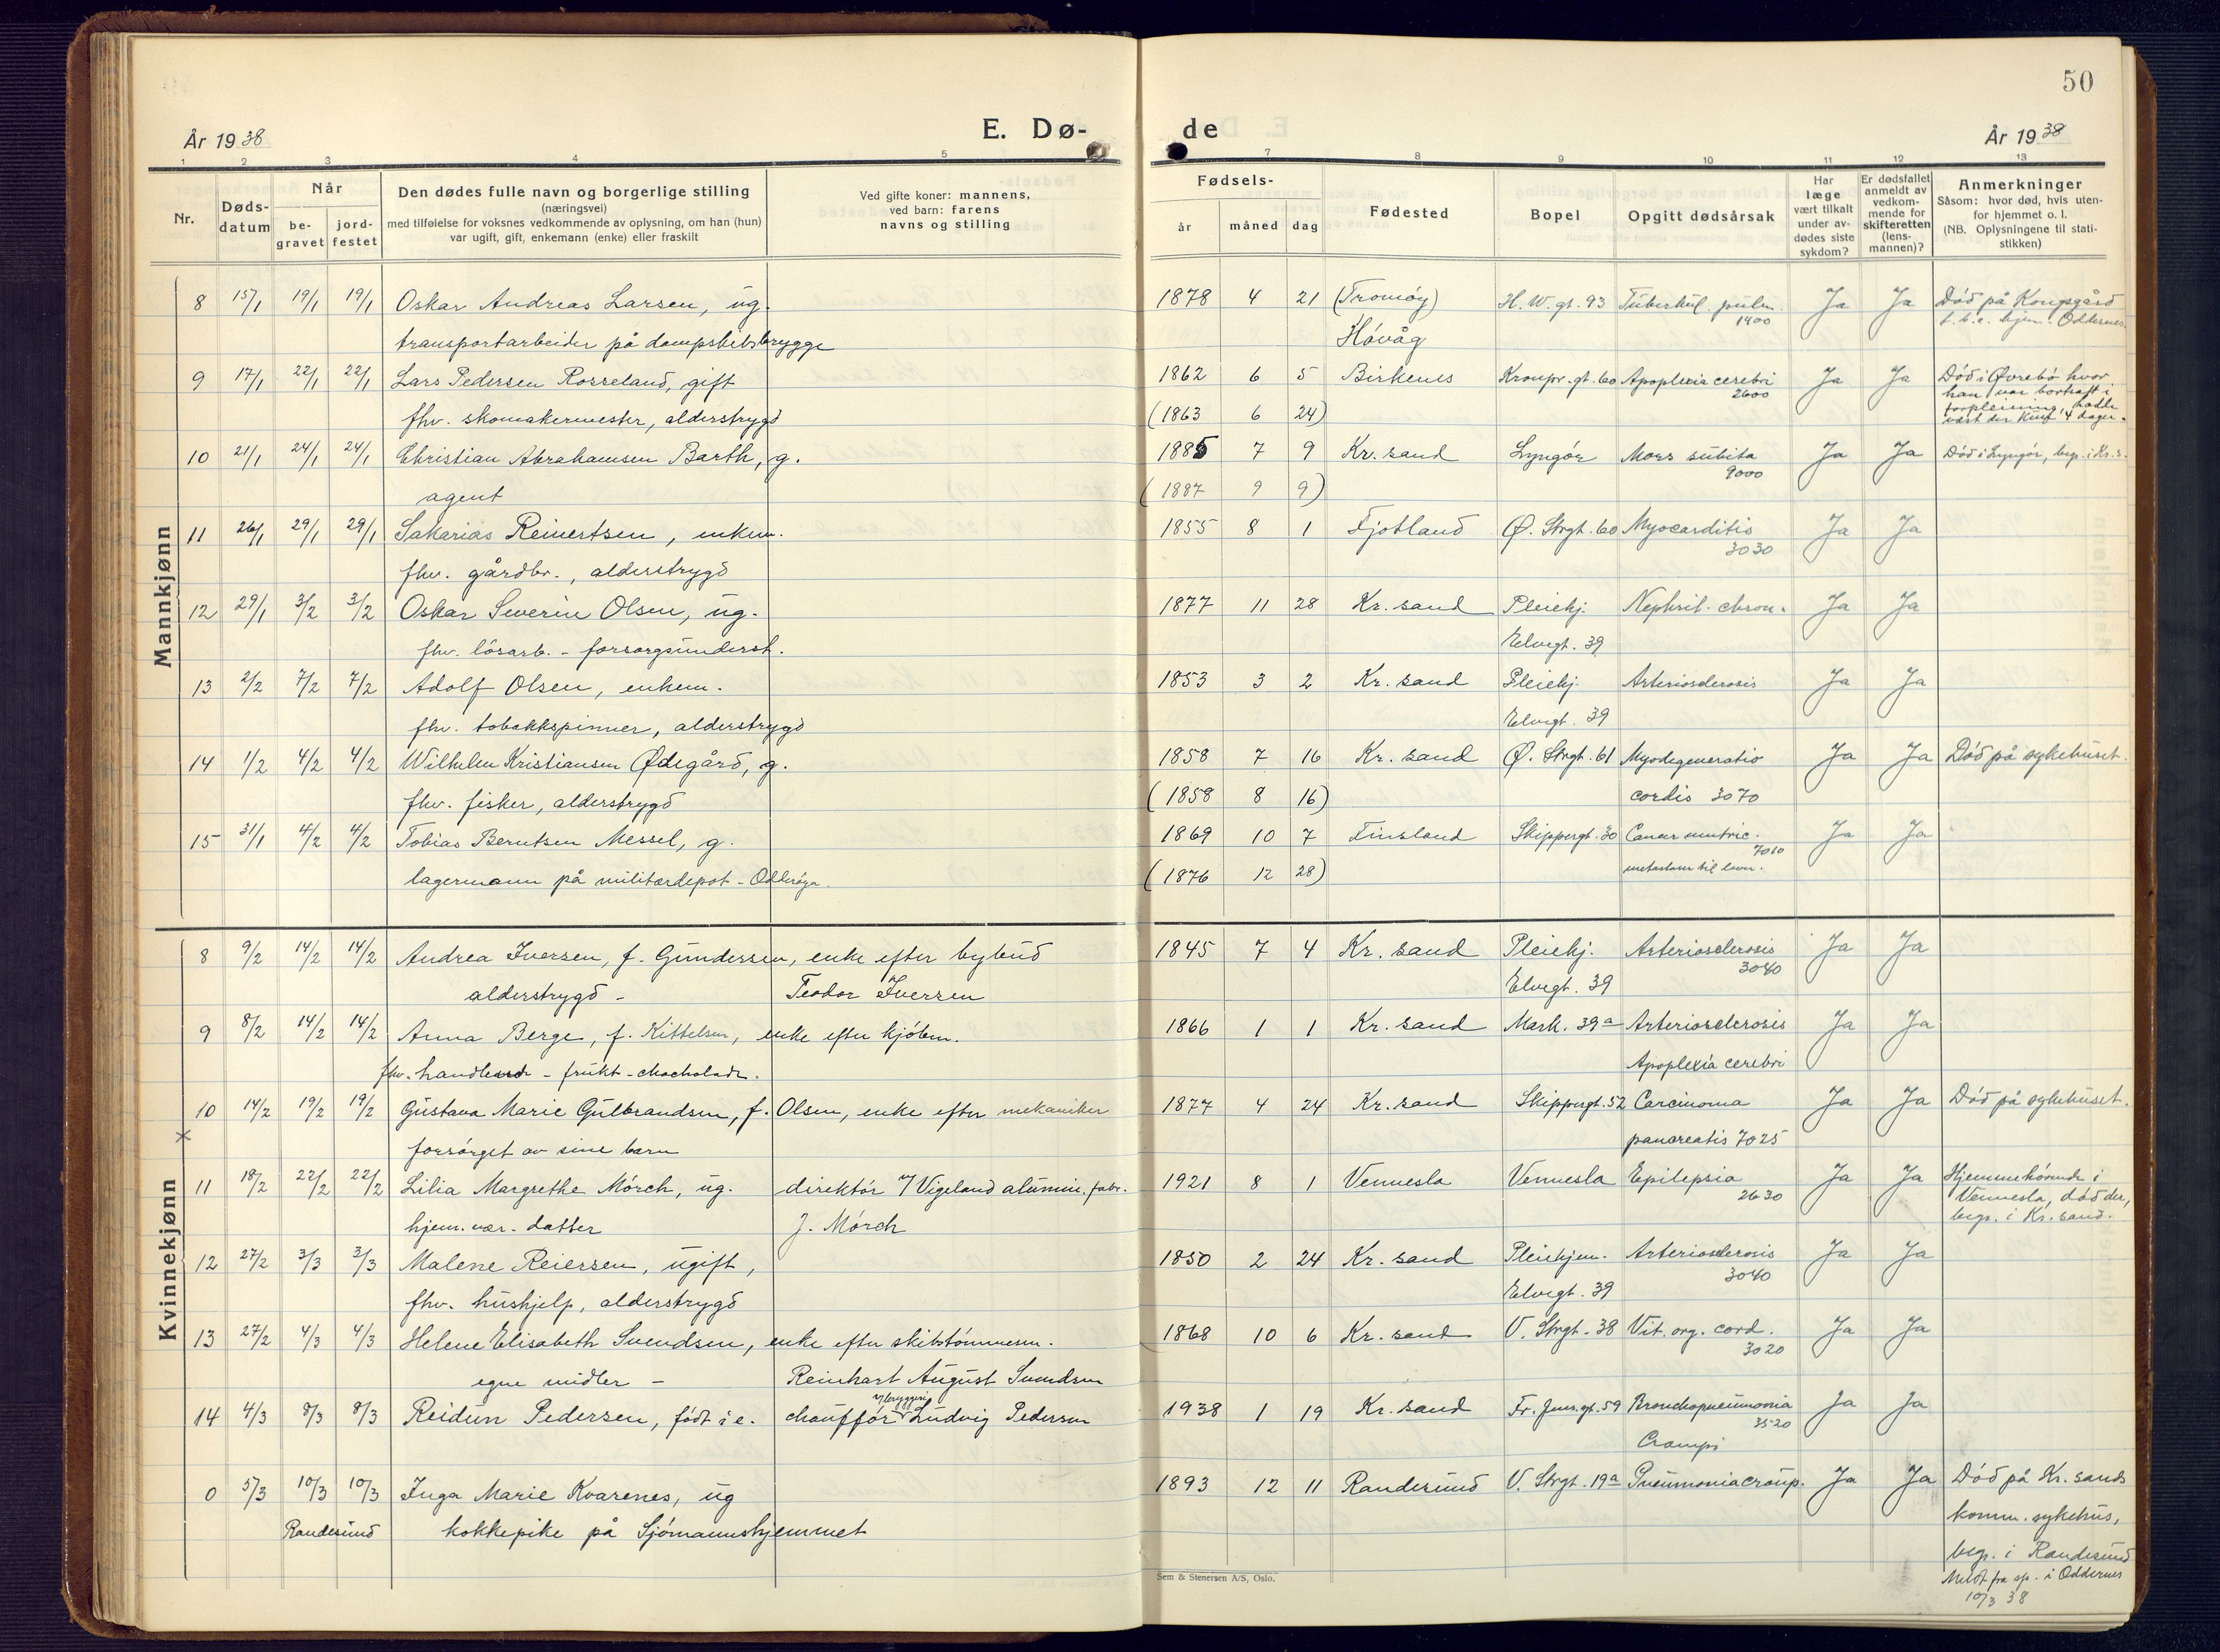 50
År 1938
E. Dø-
de
År 1938
1 2 3 4 5
7 8 9 10 11 12 13
Nr.
Døds-
datum
Når
be-
gravet
jord-
festet
Den dødes fulle navn og borgerlige stilling
(næringsvei)
med tilføielse for voksnes vedkommende av oplysning, om han (hun)
var ugift, gift, enkemann (enke) eller fraskilt
Ved gifte koner: mannens,
ved barn: farens
navns og stilling
Fødsels-
år måned dag
Fødested
Bopel
Opgitt dødsårsak
Har
læge
vært tilkalt
under av-
dødes siste
sykdom?
Er dødsfallet
anmeldt av
vedkom-
mende for
skifteretten
(lens-
mannen)?
Anmerkninger
Såsom: hvor død, hvis uten-
for hjemmet o. l.
(NB. Oplysningene til stati-
stikken)
Mannkjønn
8 15/1 19/1 19/1 Oskar Andreas Larsen, ug. 1878 4 21 (Tromøy) H. W. gt. 93 Tuberkul. pulm. Ja Ja Død på Kongsgård
1400 t.b.c. hjem. Oddernes.
transportarbeider på dampskibsbrygge Høvåg
9 17/1 22/1 22/1 Lars Pedersen Rosseland, gift 1862 6 5 Birkenes Kronpr. gt. 60 Apoplexia cerebri Ja Ja Død i Øvrebø hvor
2600 han var bortsatt i
fhv. skomakermester, alderstrygd (1863 6 24) forpleining, hadde
vært der kun 4 dager.
10 21/1 24/1 24/1 Christian Abrahamsen Barth, g. 1885 7 9 Kr. sand Lyngør Mors subita Ja Ja Død i Lyngør, begr. i Kr. s.
9000
agent (1887 9 9)
11 26/1 29/1 29/1 Sakarias Reinertsen, enkem. 1855 8 1 Fjotland Ø. Strgt. 60 Myocarditis Ja Ja
3030
fhv. gårdbr., alderstrygd
12 29/1 3/2 3/2 Oskar Severin Olsen, ug. 1877 11 28 Kr. sand Pleiehj. Nephrit. chron. Ja Ja
fhv. løsarb. - forsorgsunderst. Elvegt. 39
13 2/2 7/2 7/2 Adolf Olsen, enkem. 1853 3 2 Kr. sand Pleiehj. Arteriosclerosis Ja Ja
fhv. tobakkspinner, alderstrygd Elvegt. 39
14 1/2 4/2 4/2 Wilhelm Kristiansen Ødegård, g. 1858 7 16 Kr. sand Ø. Strgt. 61 Myodegeneratio Ja Ja Død på sykehuset.
fhv. fisker, alderstrygd (1858 8 16) cordis 3070
15 31/1 4/2 4/2 Tobias Berntsen Messel, g. 1869 10 7 Finsland Skippergt. 30 Cancer ventric. Ja Ja
7010
lagermann på militærdepot - Odderøya. (1876 12 28) metastaser til lever.
Kvinnekjønn
8 9/2 14/2 14/2 Andrea Iversen, f. Gundersen, enke efter bybud 1845 7 4 Kr. sand Pleiehj. Arteriosclerosis Ja Ja
3040
alderstrygd - Teodor Iversen Elvegt. 39
9 8/2 14/2 14/2 Anna Berge, f. Kittelsen, enke efter kjøbm. 1866 1 1 Kr. sand Mark. 39a Arteriosclerosis Ja Ja
fhv. handlende - frukt - chocholade. Apoplexia cerebri
10 14/2 19/2 19/2 Gustava Marie Gulbrandsen, f. Olsen, enke efter mekaniker 1877 4 24 Kr. sand Skippergt. 52 Carcinoma Ja Ja Død på sykehuset.
X forsørget av sine barn pancreatis 7025
11 18/2 22/2 22/2 Lilia Margrethe Mørch, ug. direktør v/ Vigeland alumin. fabr. 1921 8 1 Vennesla Vennesla Epilepsia Ja Ja Hjemmehørende i
2630 Vennesla, død der,
hjem. vær. datter J. Mørch begr. i Kr. sand.
12 27/2 3/3 3/3 Malene Reiersen, ugift, 1850 2 24 Kr. sand Pleiehjem. Arteriosclerosis Ja Ja
3040
fhv. hushjelp, alderstrygd Elvegt. 39
13 27/2 4/3 4/3 Helene Elisabeth Svendsen, enke efter skibstømmerm. 1868 10 6 Kr. sand V. Strgt. 38 Vit. org. cord. Ja Ja
3020
egne midler - Reinhart August Svendsen
14 4/3 8/3 8/3 Reidun Pedersen, født i e. chauffør v/ bryggeri Ludvig Pedersen 1938 1 19 Kr. sand Fr. Jens. gt. 59 Bronchopneumonia Ja Ja
3520
Crampi
0 5/3 10/3 10/3 Inga Marie Kvarenes, ug 1893 12 11 Randesund V. Strgt. 19a Pneumonia croup. Ja Ja Død på Kr. sands
Randesund kokkepike på Sjømannshjemmet komm. sykehus,
begr. i Randesund
Meldt fra sp. i Oddernes
10/3 38
Sem & Stenersen A/S, Oslo.